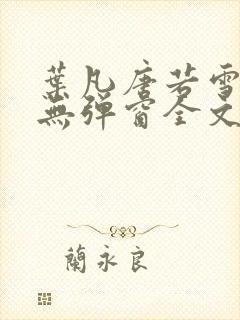 葉凡唐若雪
無彈窗全文
蘭永良